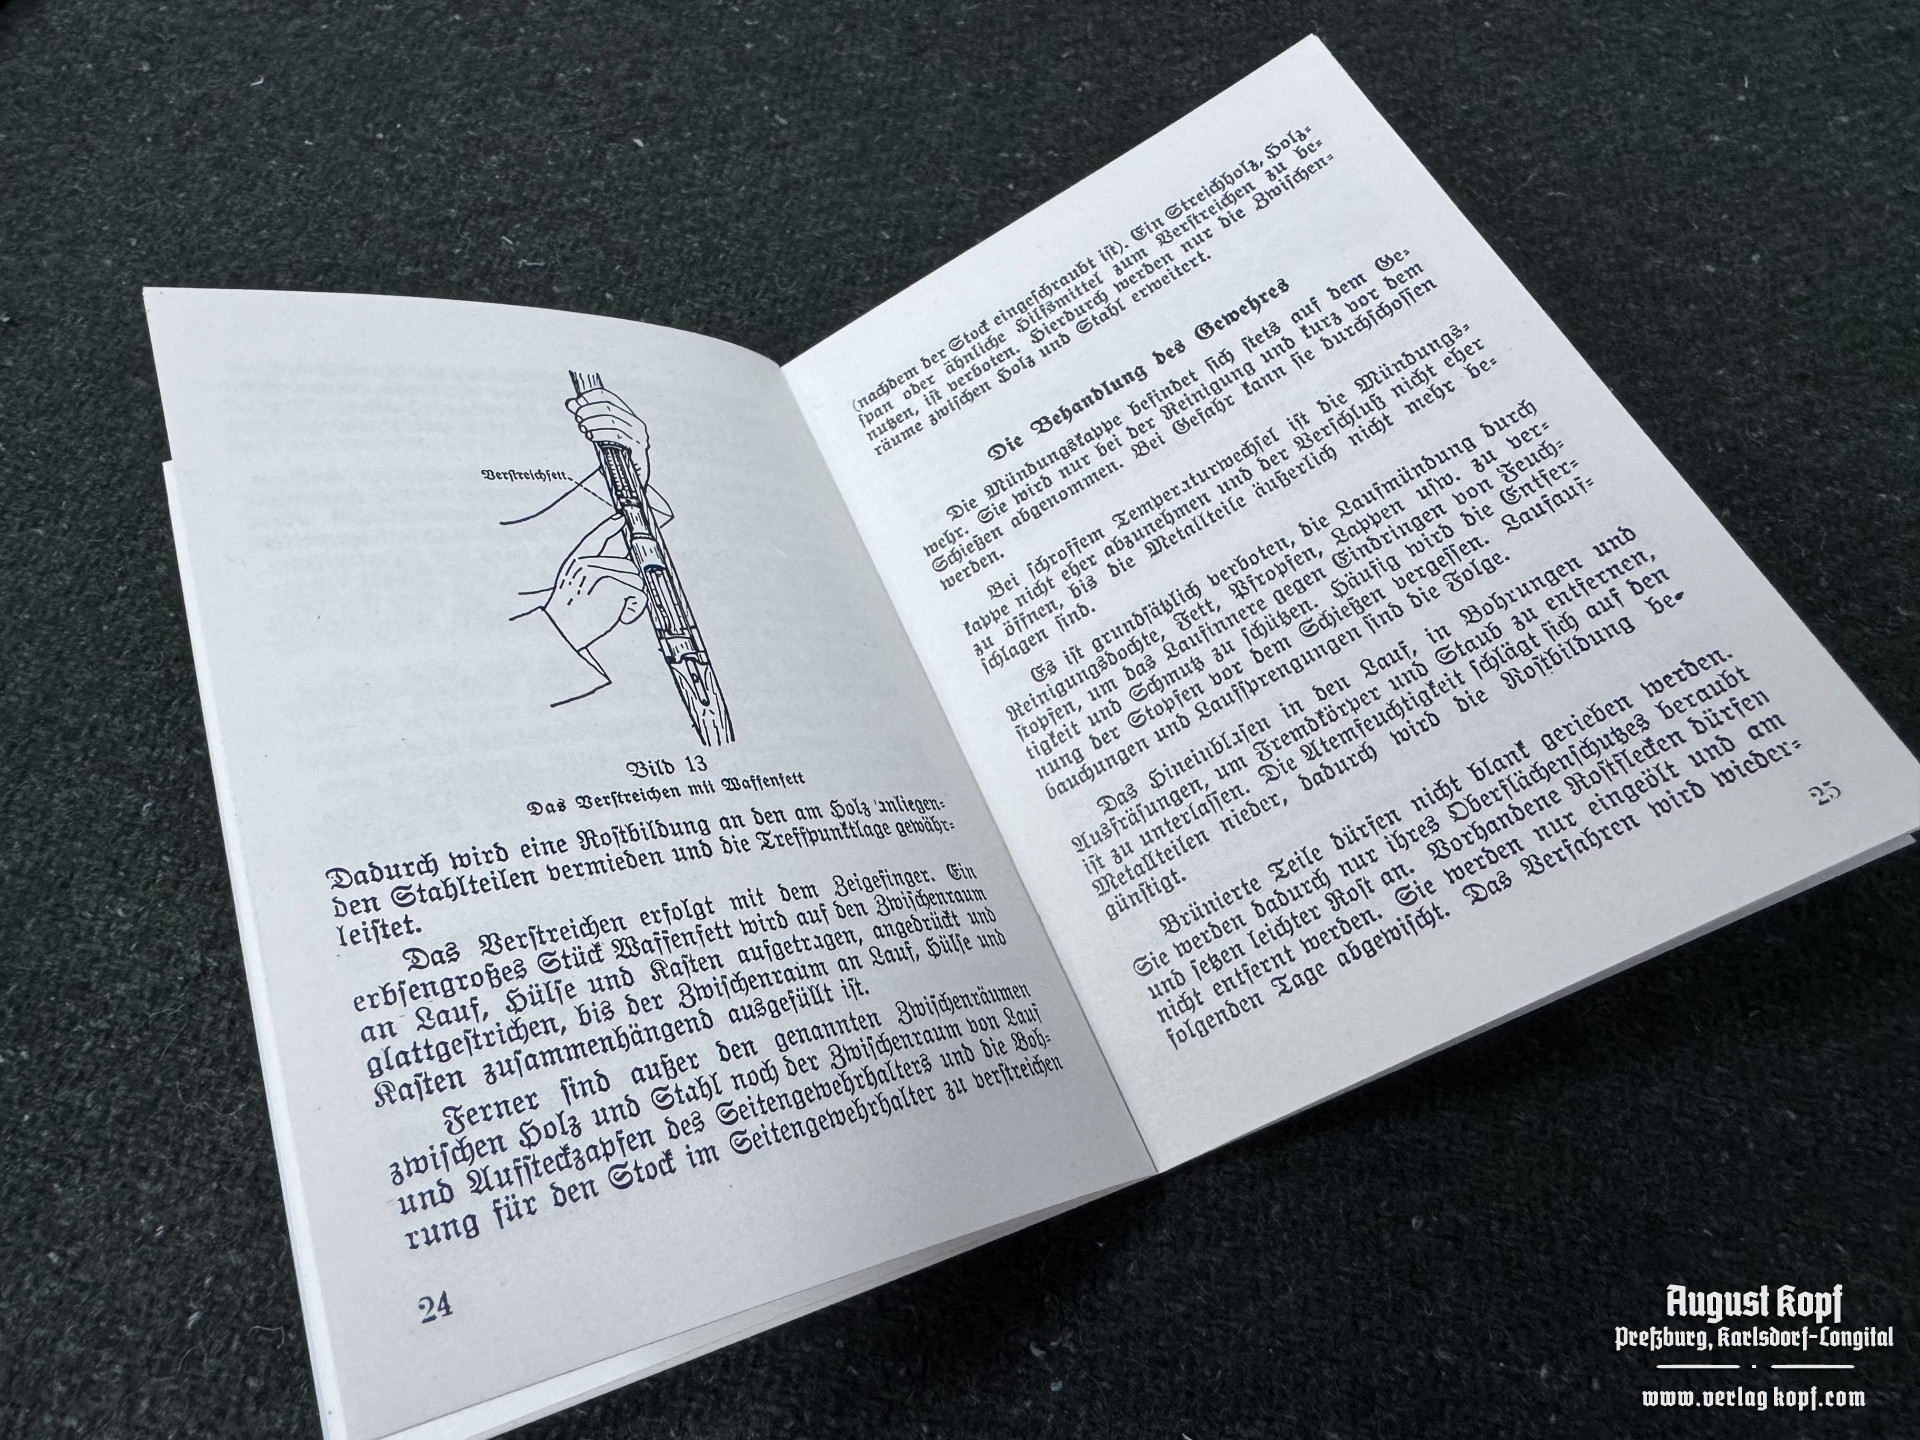 Verstreichfett
Bild 13
Das Verstreichen mit Waffenfett
Dadurch wird eine Rostbildung an den am Holz anliegen-
den Stahlteilen vermieden und die Treffpunktlage gewähr-
leistet.
Das Verstreichen erfolgt mit dem Zeigefinger. Ein
erbsengroßes Stück Waffenfett wird auf den Zwischenraum
an Lauf, Hülse und Kasten aufgetragen, angedrückt und
glattgestrichen, bis der Zwischenraum an Lauf, Hülse und
Kasten zusammenhängend ausgefüllt ist.
Ferner sind außer den genannten Zwischenräumen
zwischen Holz und Stahl noch der Zwischenraum von Lauf
und Aufsteckzapfen des Seitengewehrhalters und die Boh-
rung für den Stock im Seitengewehrhalter zu verstreichen
24
(nachdem der Stock eingeschraubt ist). Ein Streichholz, Holz-
span oder ähnliche Hilfsmittel zum Verstreichen zu be-
nutzen, ist verboten. Hierdurch werden nur die Zwischen-
räume zwischen Holz und Stahl erweitert.
Die Behandlung des Gewehres
Die Mündungskappe befindet sich stets auf dem Ge-
wehr. Sie wird nur bei der Reinigung und kurz vor dem
Schießen abgenommen. Bei Gefahr kann sie durchschossen
werden.
Bei schroffem Temperaturwechsel ist die Mündungs-
kappe nicht eher abzunehmen und der Verschluß nicht eher
zu öffnen, bis die Metallteile äußerlich nicht mehr be-
schlagen sind.
Es ist grundsätzlich verboten, die Laufmündung durch
Reinigungsdochte, Fett, Pfropfen, Lappen usw. zu ver-
stopfen, um das Laufinnere gegen Eindringen von Feuch-
tigkeit und Schmutz zu schützen. Häufig wird die Entfer-
nung der Stopfen vor dem Schießen vergessen. Laufauf-
bauchungen und Laufsprengungen sind die Folge.
Das Hineinblasen in den Lauf, in Bohrungen und
Ausfräsungen, um Fremdkörper und Staub zu entfernen,
ist zu unterlassen. Die Atemfeuchtigkeit schlägt sich auf den
Metallteilen nieder, dadurch wird die Rostbildung be-
günstigt.
Brünierte Teile dürfen nicht blank gerieben werden.
Sie werden dadurch nur ihres Oberflächenschutzes beraubt
und setzen leichter Rost an. Vorhandene Rostflecken dürfen
nicht entfernt werden. Sie werden nur eingeölt und am
folgenden Tage abgewischt. Das Verfahren wird wieder-
25
August Kopf
Preßburg, Karlsdorf-Longital
www.verlagkopf.com